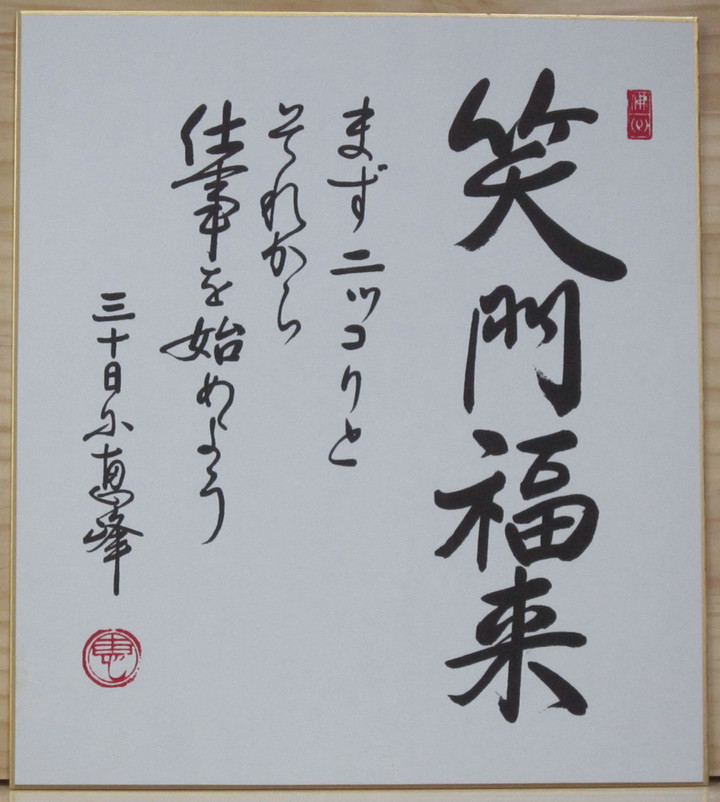 笑門福来
まずニッコリと
それから
仕事を始めよう
三十日 恵峰
恵